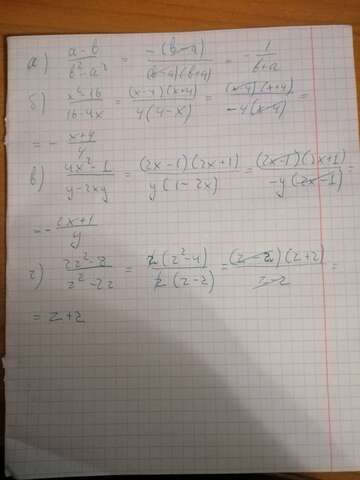 а) (a-b)/(b²-a²) = -(b-a)/((b-a)(b+a)) = -1/(b+a)
б) (x²-16)/(16-4x) = (x-4)(x+4)/(4(4-x)) = (x-4)(x+4)/(-4(x-4)) =
= - (x+4)/4
в) (4x²-1)/(y-2xy) = (2x-1)(2x+1)/(y(1-2x)) = (2x-1)(2x+1)/(-y(2x-1)) =
= - (2x+1)/y
г) (2z²-8)/(z²-2z) = 2(z²-4)/(2(z-2)) = (z-2)(z+2)/(z-2) =
= z+2